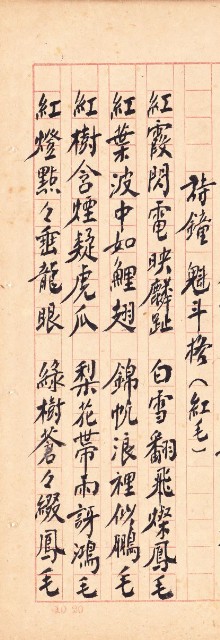 詩鐘 魁斗格（紅毛）
紅霞閃電映麟趾 白雪翻飛燦鳳毛
紅葉波中如鯉翅 錦帆浪裡似鵬毛
紅樹含煙疑虎爪 梨花帶雨訝鴻毛
紅燈點々垂龍眼 綠樹蒼々綴鳳毛
10 20